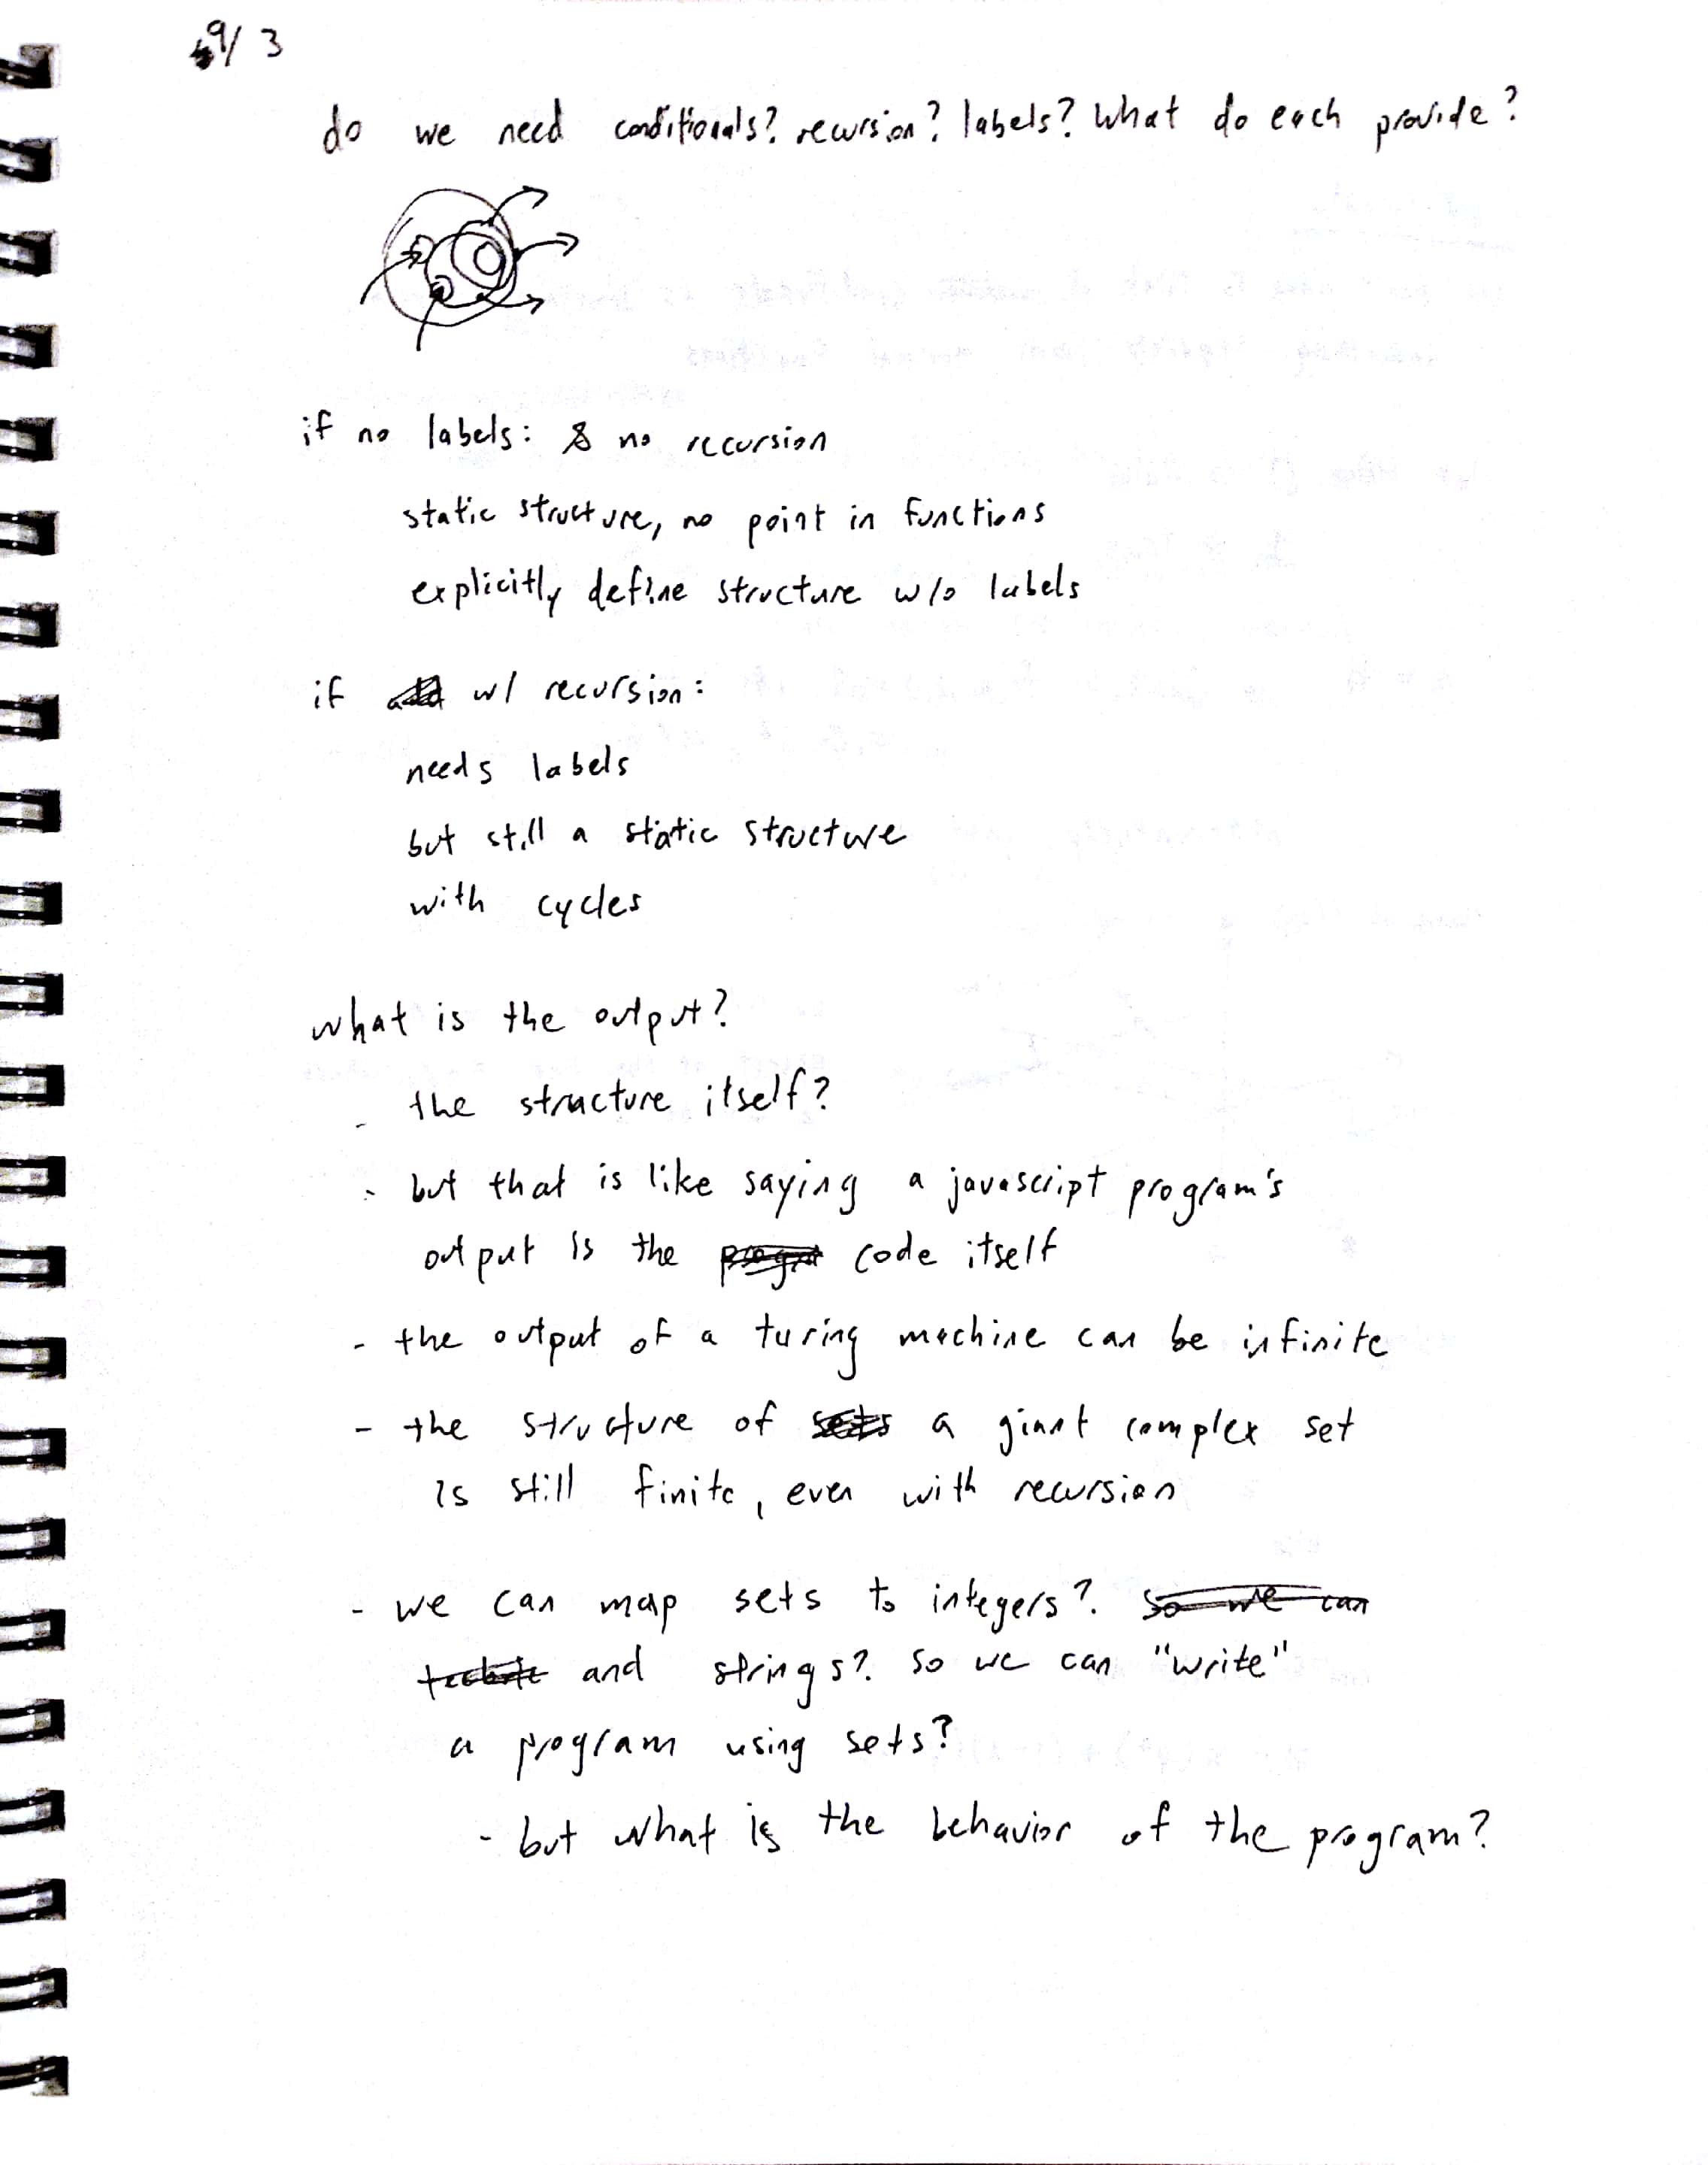 9/3
do we need conditionals? recursion? labels? What do each provide?
if no labels: & no recursion
static structure, no point in functions
explicitly define structure w/o labels
if w/ recursion:
needs labels
but still a static structure
with cycles
what is the output?
- the structure itself?
- but that is like saying a javascript program's
output is the code itself
- the output of a turing machine can be infinite
- the structure of sets a giant complex set
is still finite, even with recursion
- we can map sets to integers? so we can
and strings? so we can "write"
a program using sets?
- but what is the behavior of the program?